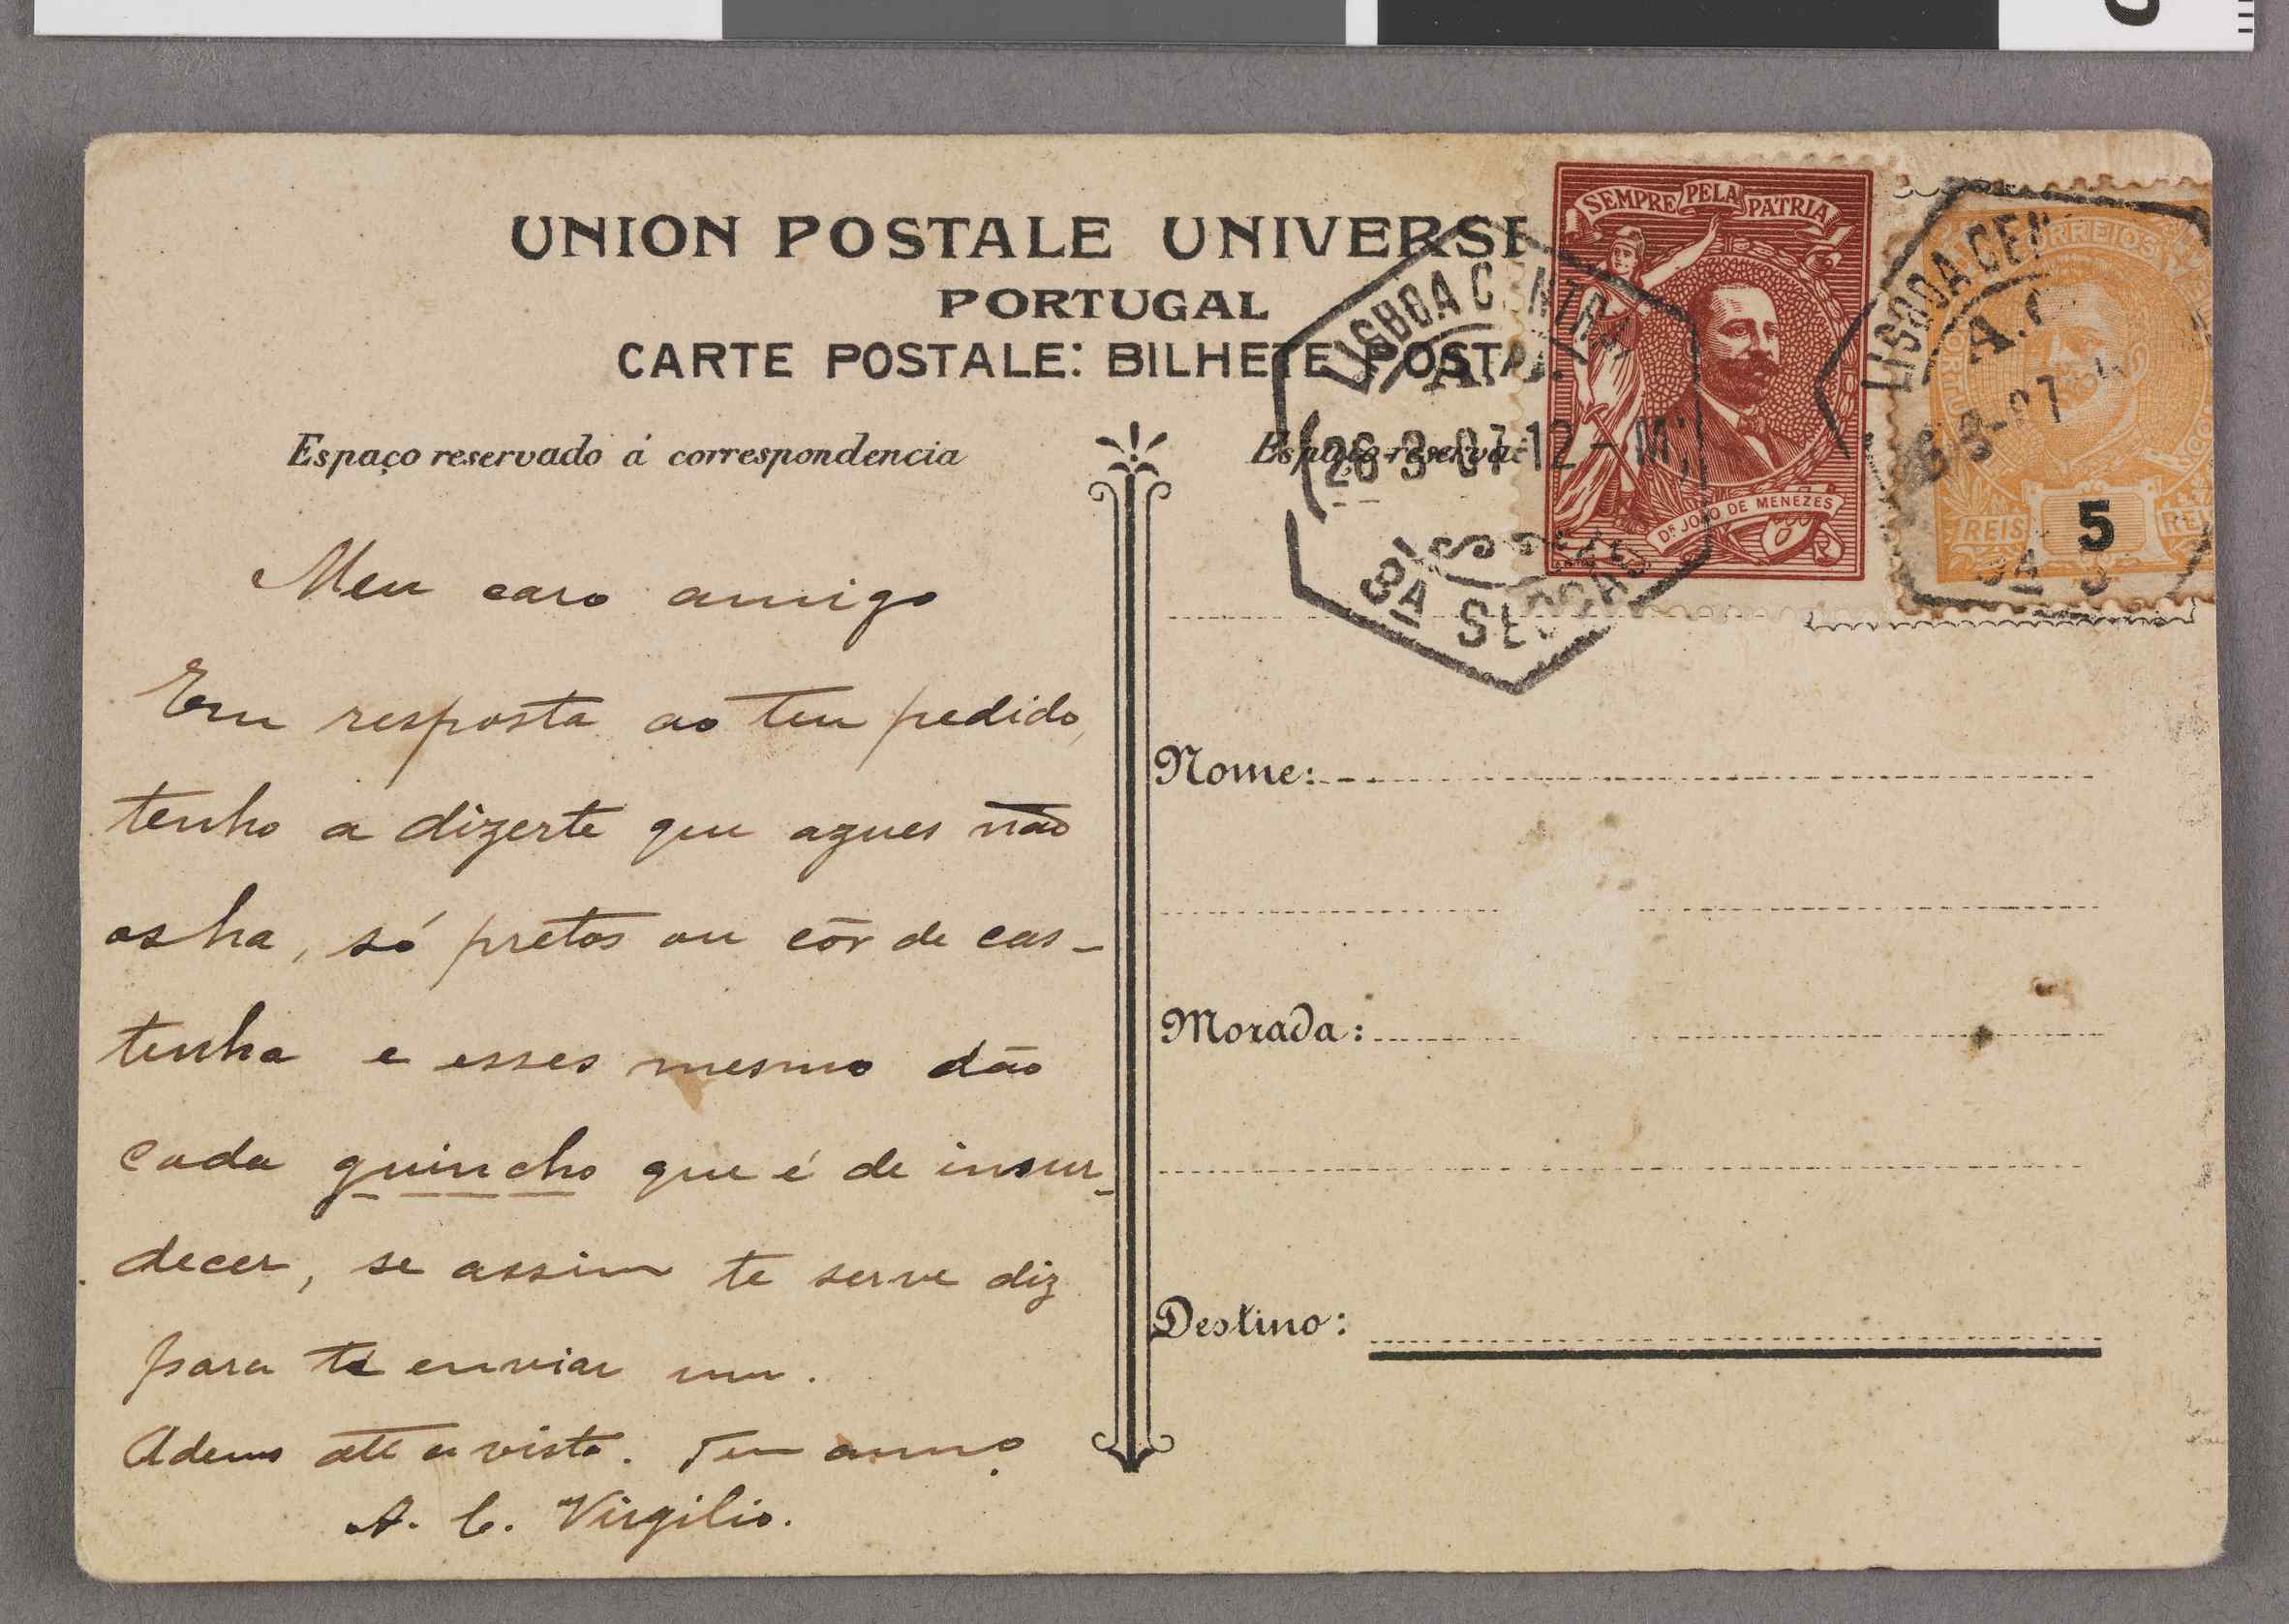 UNION POSTALE UNIVERSE
PORTUGAL
CARTE POSTALE: BILHETE POSTAL
Espaço reservado á correspondencia
Meu caro amigo
Em resposta ao teu pedido,
tenho a dizerte que azues não
os ha, só pretos ou côr de cas-
tenha e esses mesmo dão
cada guincho que é de insur-
decer, se assim te serve diz
para te enviar um.
Adeus até á vista. Teu amo
A. C. Virgilio.
Espaço reserva
SEMPRE PELA PATRIA
Dr JOÃO DE MENEZES
LISBOA CENTRAL
26 3-07 12-M
8A SECÇÃO
LISBOA CEN
A.
3-07
CORREIOS
REIS 5 REI
Nome:
Morada:
Destino: